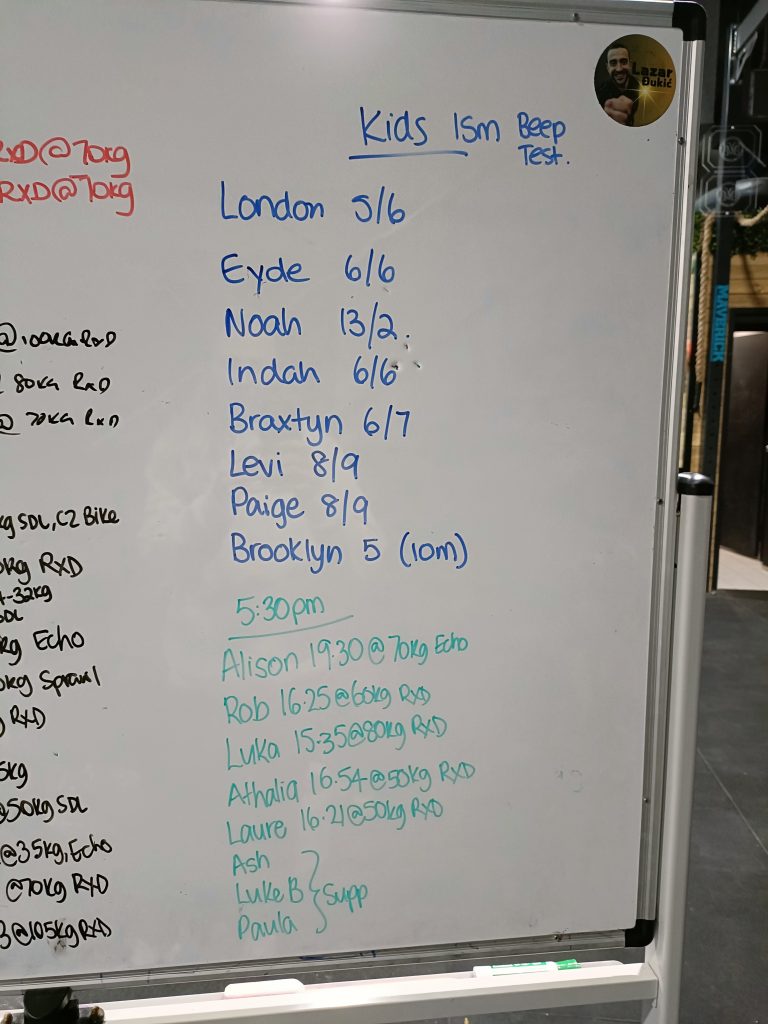 Lazar
Đukić
Kids 15m Beep
Test.
RXD@70kg
RXD@70kg
London 5/6
Eyde 6/6
Noah 13/2.
Indah 6/6
Braxtyn 6/7
Levi 8/9
Paige 8/9
Brooklyn 5 (10m)
@100KG RXD
80KG RXD
@ 70KG RXD
kg SDL, C2 Bike
kg RXD
-32kg
SDL
kg Echo
kg Sprawl
RXD
5kg
@50kg SDL
@35kg, Echo
@70kg RXD
3@105kg RXD
5:30pm
Alison 19:30@70kg Echo
Rob 16:25@60kg RXD
Luka 15:35@80kg RXD
Athalia 16:54@50kg RXD
Laure 16:21@50kg RXD
Ash
Luke B } Supp
Paula
MAVERICK